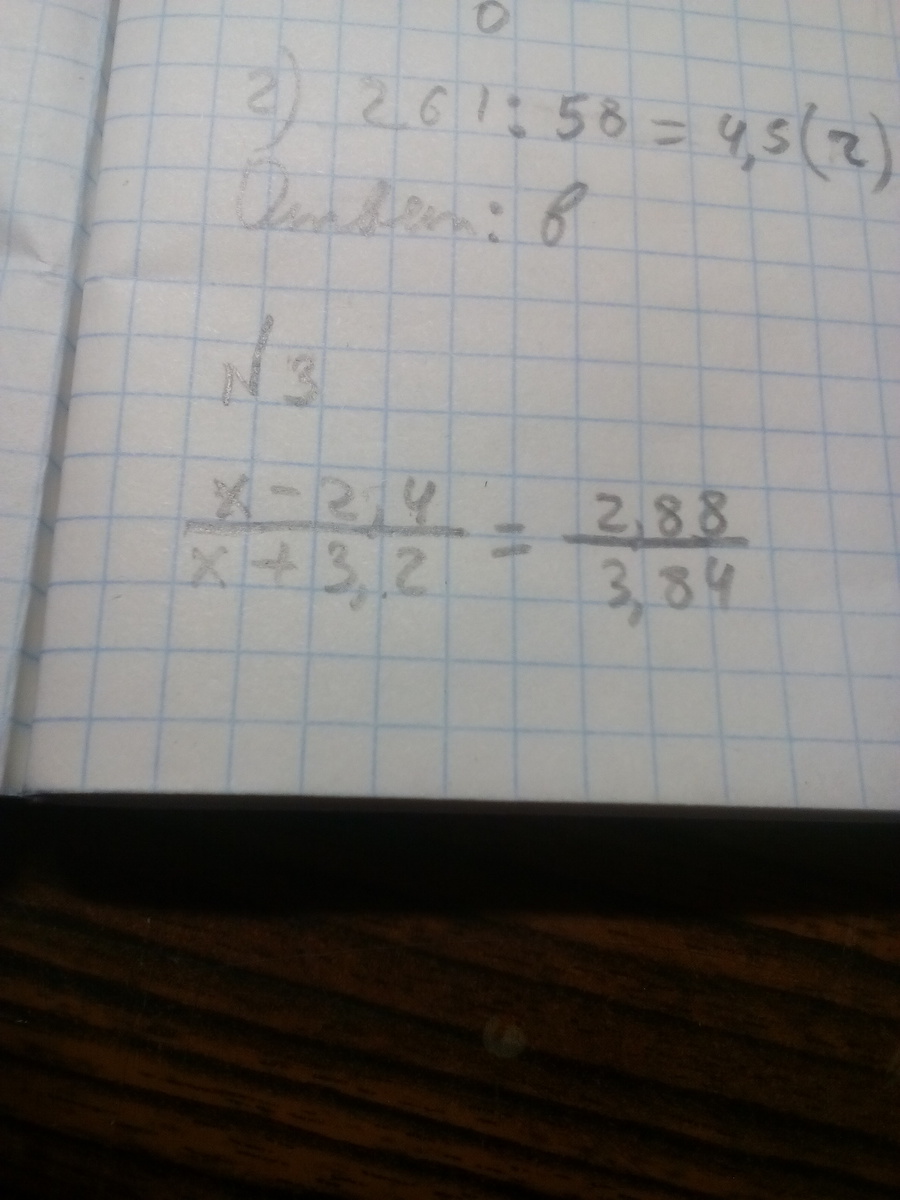 0
2) 261 : 58 = 4,5 (г)
Ответ: в
№3
x - 2,4 / x + 3,2 = 2,88 / 3,84